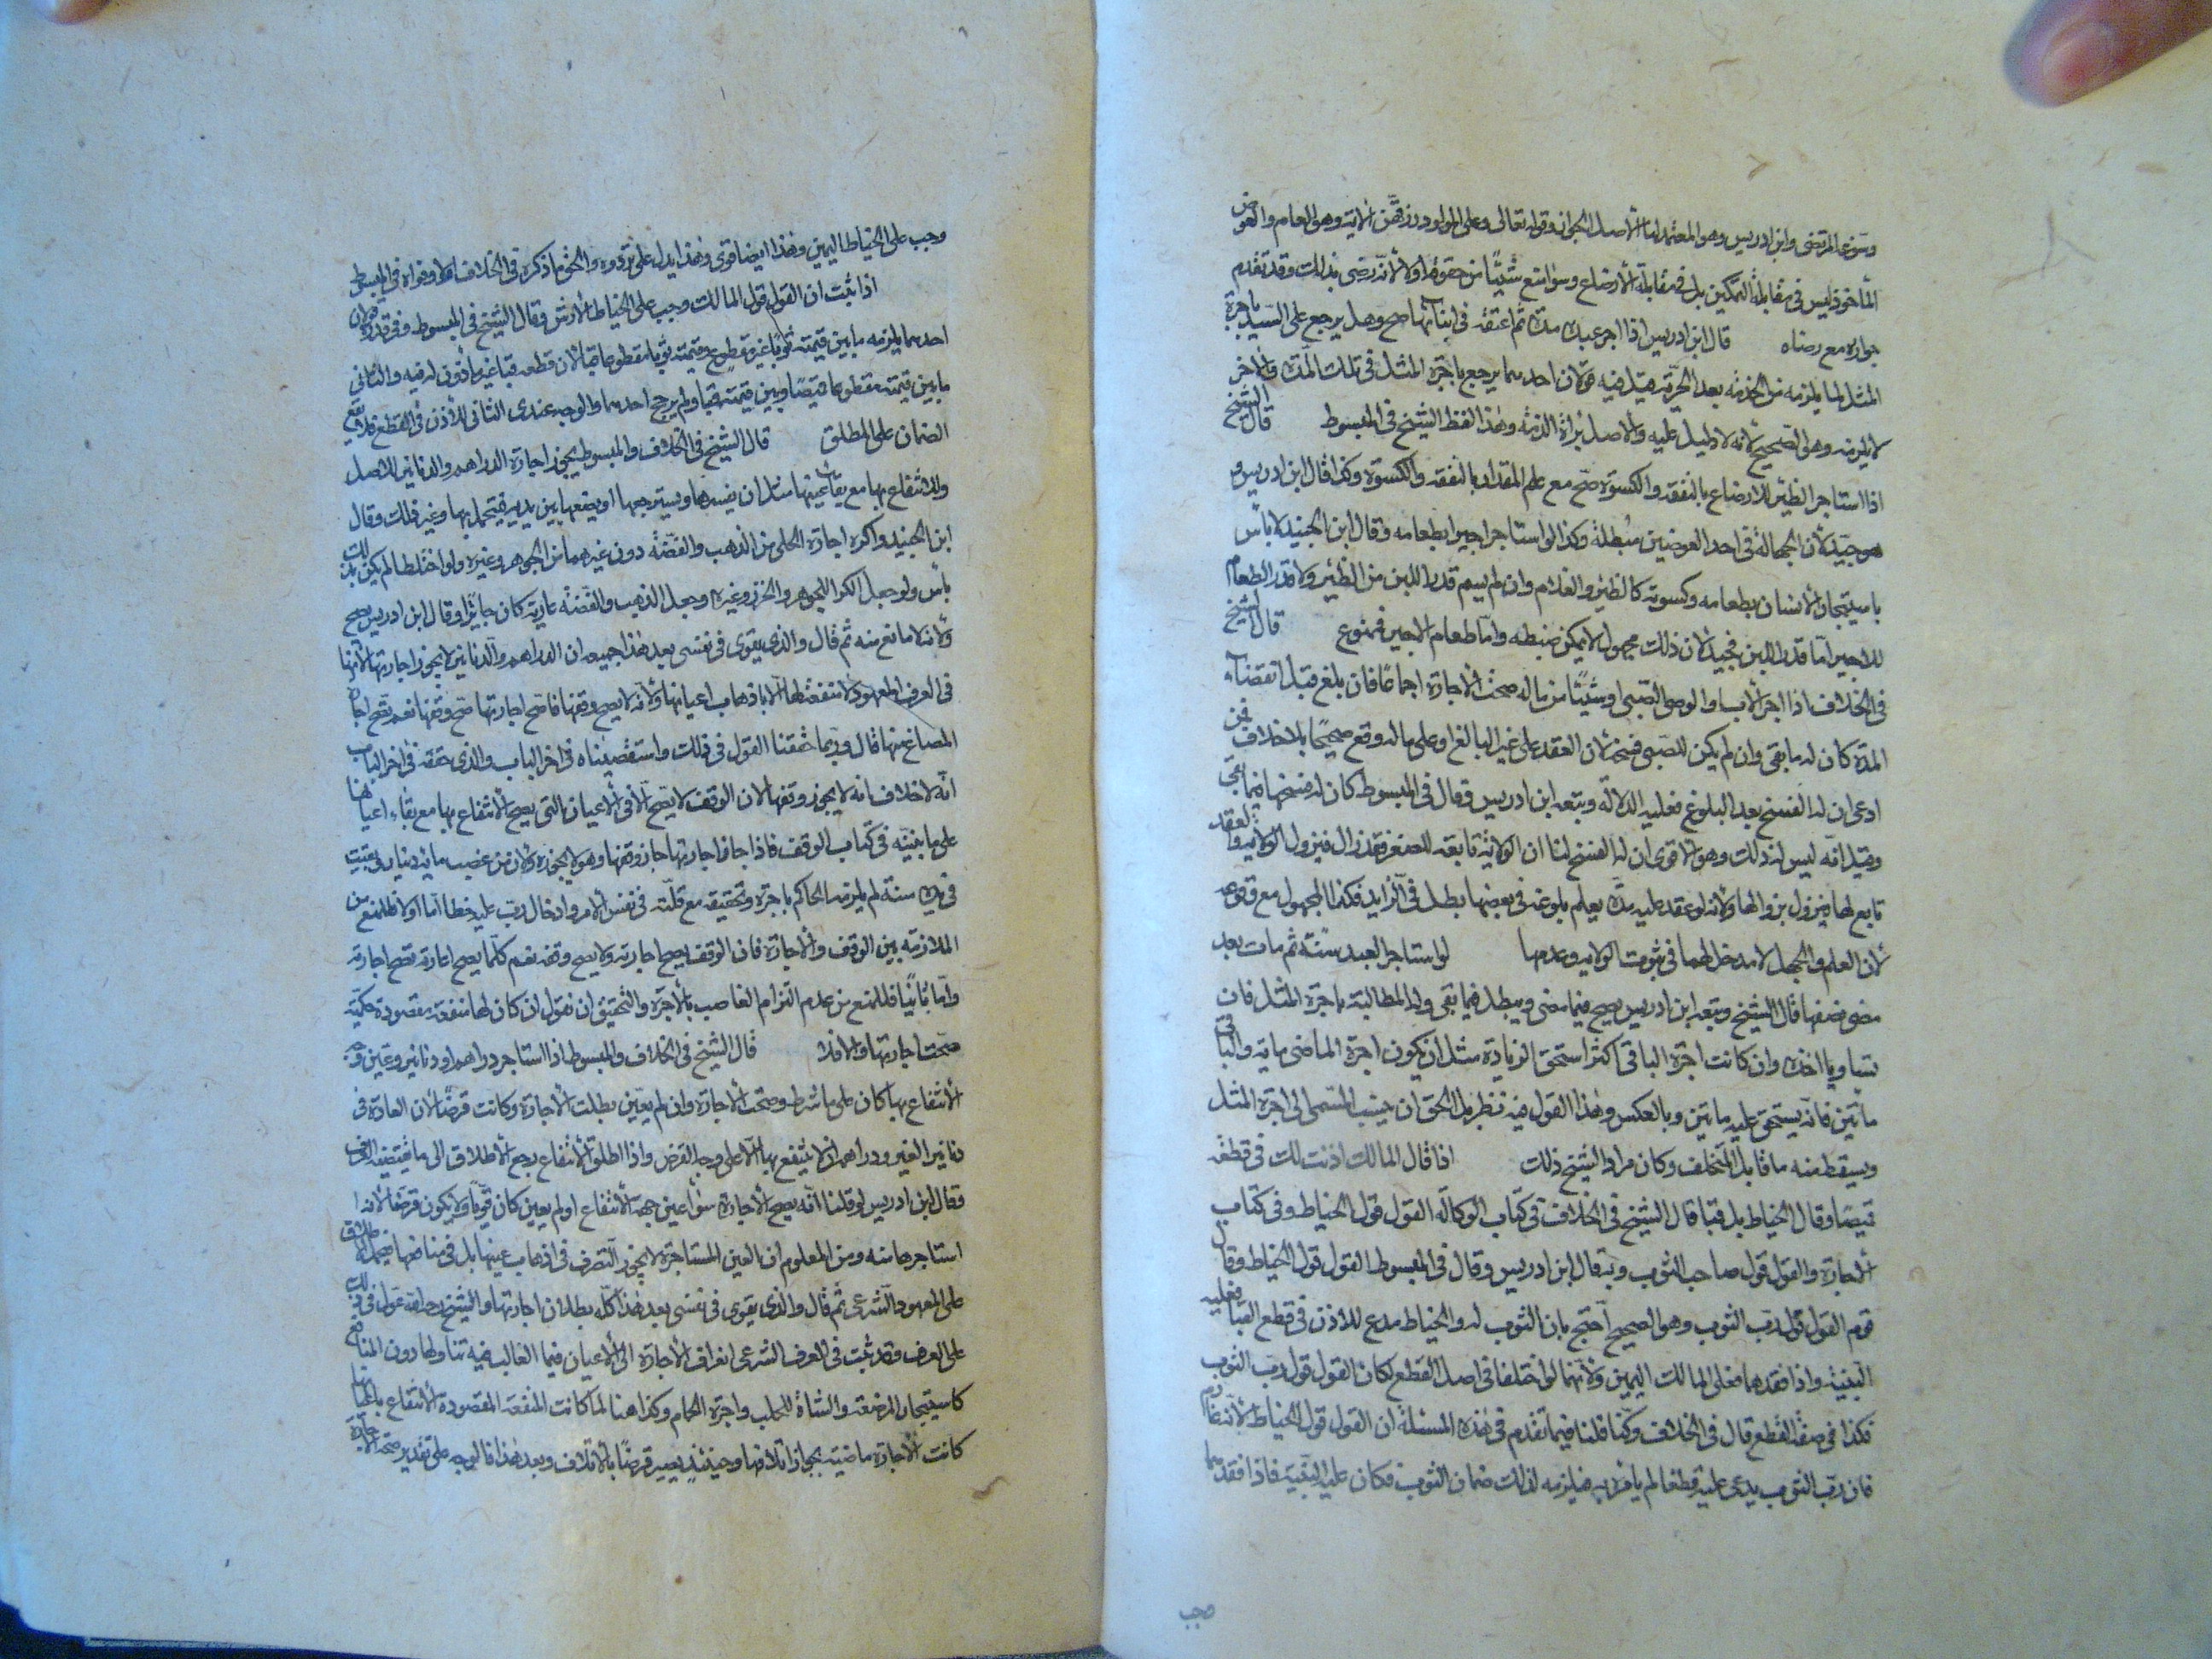 وسوى المرتضى وابن ادريس وهو المعتمد لنا الأصل الجواز وقوله تعالى وعلى المولود رزقهن الاية وهو العام والعوض
المأخوذ ليس فى مقابلة التمكين بل فى مقابلة الأرضاع وسوا منع شيئا من حقوقه اولا لانه رضى بذلك وقد تقدم
جوازه مع رضاه قال ابن ادريس اذا اجر عبده مدة ثم اعتقه فى اثنائها صح وهل يرجع على السيد باجرة
المثل لما يلزمه من الخدمة بعد الحرية قيل فيه قولان احدهما يرجع باجرة المثل فى تلك المدة والاخر
لا يلزمه وهو الصحيح لانه لا دليل عليه والاصل براة الذمة وهذا لفظ الشيخ فى المبسوط قال الشيخ
اذا استاجر الظئر للارضاع بالنفقة والكسوة صح مع علم المقدار بالنفقة والكسوة وكذا قال ابن ادريس و
هو جيد لان الجهالة فى احد العوضين مبطلة وكذا لو استاجر اجيرا بطعامه وقال ابن الجنيد لا بأس
باستيجار الانسان بطعامه وكسوته كالظئر والغلام وان لم يسم قدر اللبن من الظئر ولا قدر الطعام
للاجير اما قدر اللبن فجيد لان ذلك مجهول لا يمكن ضبطه واما طعام الاجير فممنوع قال الشيخ
فى الخلاف اذا اجر الاب او الوصى الصبى او شيئا من ماله صحت الاجارة اجماعا فان بلغ قبل انقضاء
المدة كان له ما بقى وان لم يكن للصبى فسخه لان العقد على غير البالغ او على ماله وقع صحيحا بلا خلاف فمن
ادعى ان له الفسخ بعد البلوغ فعليه الدلالة وتبعه ابن ادريس وقال فى المبسوط كان له فسخها فيما بقى
وقيل انه ليس له ذلك وهو الاقوى ان له الفسخ لنا ان الولاية تابعة للصغر وقد زال فيزول الولاية والعقد
تابع لها فيزول بزوالها ولانه لو عقد عليه مدة يعلم بلوغه فى بعضها بطل فى الزايد فكذا المجهول مع وقوعه
لان العلم والجهل لا مدخل لهما فى ثبوت الولاية وعدمها لو استاجر العبد سنة ثم مات بعد
مضى نصفها قال الشيخ وتبعه ابن ادريس يصح فيما مضى ويبطل فيما بقى وله المطالبة باجرة المثل فان
تساويا اخذه وان كانت اجرة الباقى اكثر استحق الزيادة مثل ان يكون اجرة الماضى ماية والباقى
مأتين فانه يستحق عليه مأتين وبالعكس وهذا القول فيه نظر بل الحق ان ينسب المسمى الى اجرة المثل
ويسقط منه ما قابل المتخلف وكان مراد الشيخ ذلك اذا قال المالك اذنت لك فى قطعه
قميصا وقال الخياط بل قبا قال الشيخ فى الخلاف فى كتاب الوكالة القول قول الخياط وفى كتاب
الاجارة والقول قول صاحب الثوب وبه قال ابن ادريس وقال فى المبسوط القول قول الخياط وقال
قوم القول قول رب الثوب وهو الصحيح احتج بان الثوب له والخياط مدع للاذن فى قطع القبا فعليه
البينة واذا فقدها فعلى المالك اليمين ولانهما لو اختلفا فى اصل القطع لكان القول قول رب الثوب
فكذا فى صفة القطع قال فى الخلاف وكنا قلنا فيما تقدم فى هذه المسئلة ان القول قول الخياط لانه غارم
فان رب الثوب يدعى عليه قطعا لم يامره به فيلزمه لذلك ضمان الثوب فكان عليه البينة فاذا فقدها
وجب
وجب على الخياط اليمين وهذا ايضا قوى وهذا يدل على تردده والحق ما ذكره فى الخلاف اولا وقواه فى المبسوط
اذا ثبت ان القول قول المالك وجب على الخياط الارش فقال الشيخ فى المبسوط وفى قدره قولان
احدهما يلزمه ما بين قيمته ثوبا غير مقطوع وقيمته ثوبا مقطوعا قبا لان قطعه قبا غير ماذون له فيه والثانى
ما بين قيمته مقطوعا قميصا وبين قيمته قبا ولم يرجح احدهما والوجه عندى الثانى للاذن فى القطع فلا يقع
الضمان على المطلق قال الشيخ فى الخلاف والمبسوط يجوز اجارة الدراهم والدنانير للاصل
وللانتفاع بها مع بقاء عينها مثل ان ينثرها ويسترجعها او يضعها بين يديه فيتجمل بها وغير ذلك وقال
ابن الجنيد واكره اجارة الحلى من الذهب والفضة دون غيرهما من الجوهر وغيره ولو اختلطا لم يكن بذلك
بأس ولو جعل الكرا للجوهر والخرز وغيره وجعل الذهب والفضة عارية كان جايزا وقال ابن ادريس يصح
ولانه لا مانع منه ثم قال والذى يقوى فى نفسى بعد هذا جميعه ان الدراهم والدنانير لا يجوز اجارتها لانها
فى العرف المعهود لا منفعة لها الا باذهاب اعيانها ولانه لا يصح وقفها فلو صح اجارتها صح وقفها نعم تصح اجارة
المصاغ منها قال وربما حققنا القول فى ذلك واستقصيناه فى اخر الباب والذى حققه فى اخر الباب
انه لا خلاف انه لا يجوز وقفها لان الوقف لا يصح الا فى الاعيان التى يصح الانتفاع بها مع بقاء اعيانها
على ما بينته فى كتاب الوقف فاذا جاز اجارتها جاز وقفها وهو لا يجوزه ولان من غصب ماية دينار فبقيت
فى يده سنة لم يلزمه الحاكم باجرة وتحقيقه مع قلته فى نفس الامر وادخال رب عليه خطا اما اولا فللمنع من
الملازمة بين الوقف والاجارة فان الوقف يصح اجارته ولا يصح وقفه نعم كلما يصح اعارته تصح اجارته
واما ثانيا فللمنع من عدم التزام الغاصب بالاجرة والتحقيق ان نقول ان كان لها منفعة مقصودة حكمية
صحت اجارتها والا فلا قال الشيخ فى الخلاف والمبسوط اذا استاجر دراهم او دنانير وعين وجه
الانتفاع بها كان على ما شرط وصحت الاجارة وان لم يعين بطلت الاجارة وكانت قرضا لان العادة فى
دنانير الغير ودراهمه ان لا ينتفع بها الا على وجه القرض واذا اطلق الانتفاع رجع الاطلاق الى ما يقتضيه العرف
وقال ابن ادريس لو قلنا انه يصح الاجارة سواء عين جهة الانتفاع او لم يعين كان قويا ولا يكون قرضا لانه
استاجرها منه ومن المعلوم ان العين المستاجرة لا يجوز التصرف فى اذهاب عينها بل فى منافعها فيحمل الاطلاق
على المعهود الشرعى ثم قال والذى يقوى فى نفسى بعد هذا كله بطلان اجارتها والشيخ رحمه الله عول فى ذلك
على العرف وقد ثبت فى العرف الشرعى انصراف الاجارة الى الاعيان فيما الغالب فيه تناولها دون المنافع
كاستيجار المرضعة والشاة للحلب واجرة الحمام وكذا هنا لما كانت المنفعة المقصودة الانتفاع باتلافها
كانت الاجارة ماضية بجواز اتلافها وحينئذ يصير قرضا بالاتلاف وبعد هذا فالوجه على تقدير صحة الاجارة